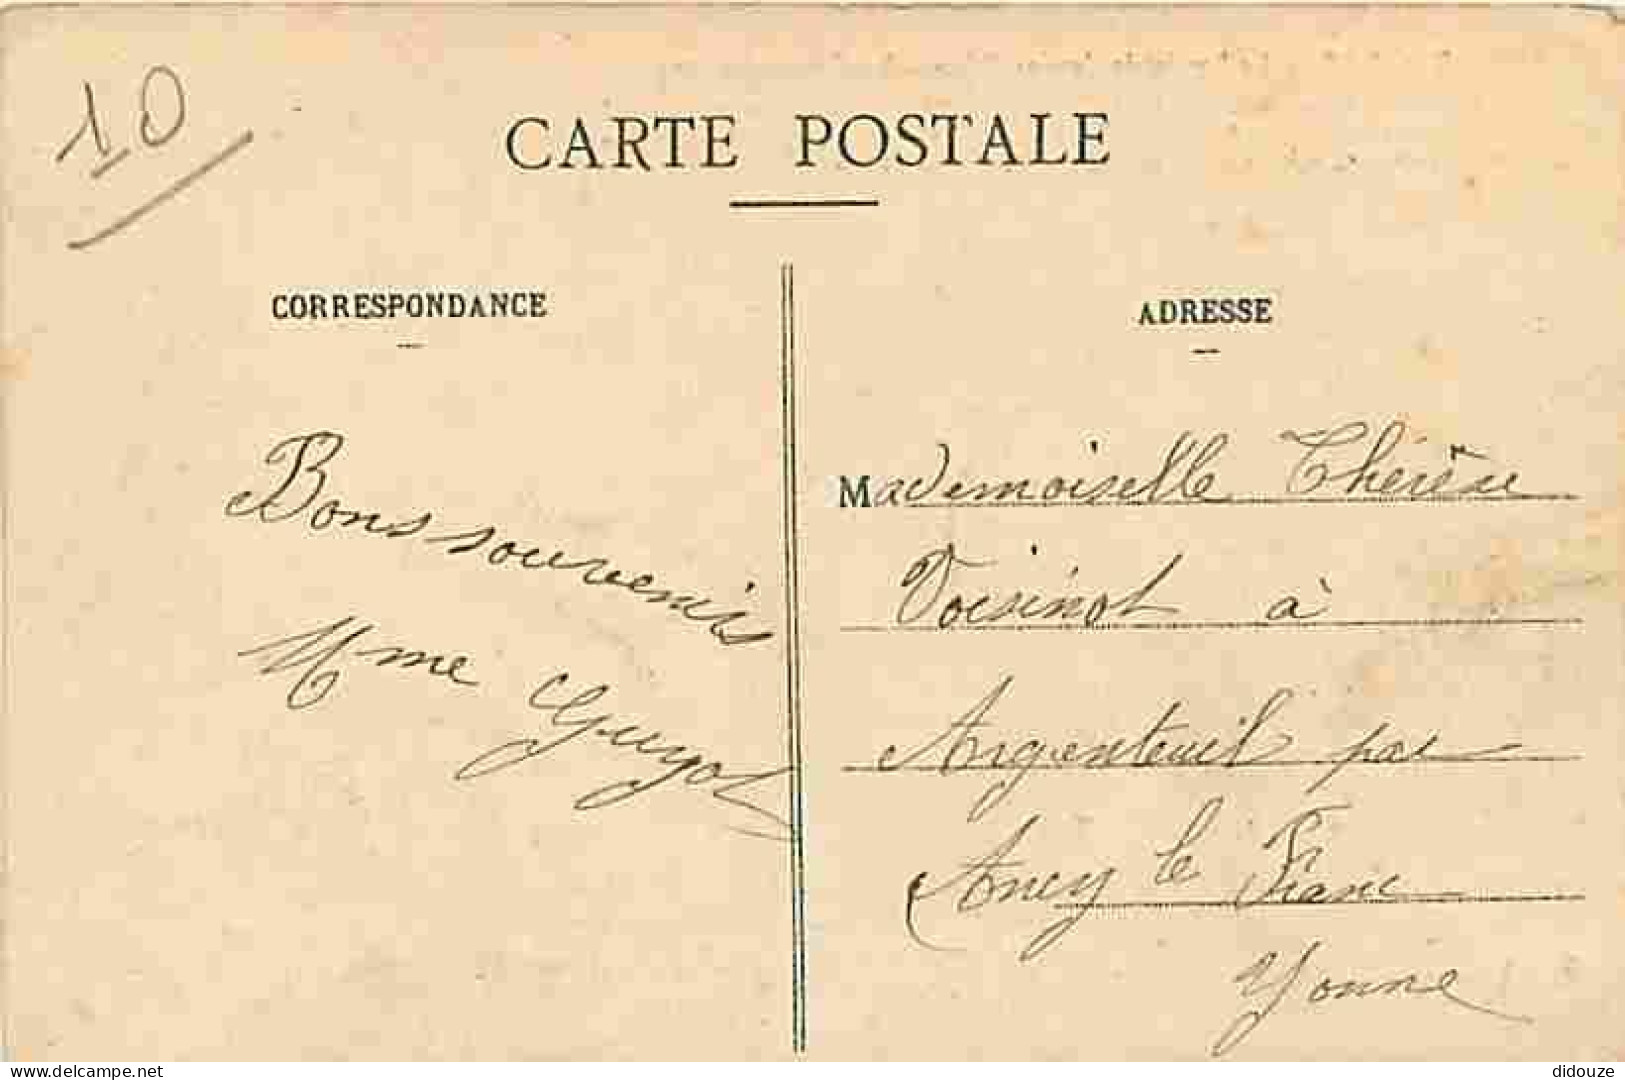 10
CARTE POSTALE
CORRESPONDANCE
Bons souvenirs
Mme Guyot
ADRESSE
Mademoiselle Thérèse
Voisinot à
Argenteuil par
Ancy le Franc
Yonne
www.delcampe.net
didouze